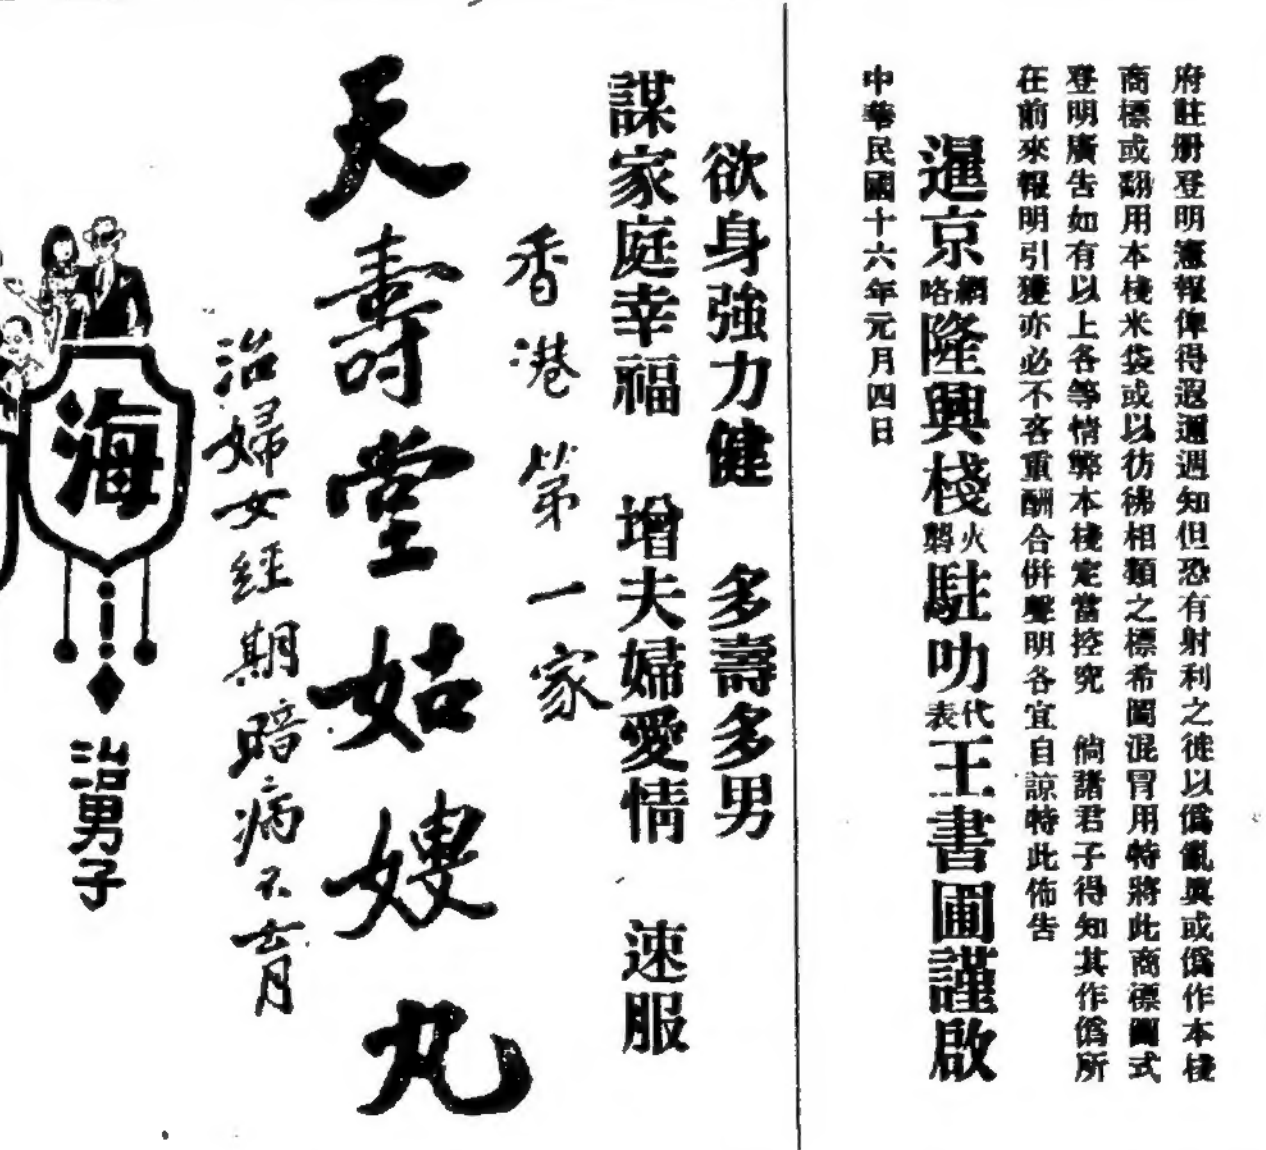 府註册登明憲報俾得遐邇週知但恐有射利之徒以僞亂眞或僞作本棧
商標或翻用本棧米袋或以彷彿相類之標希圖混冒用特將此商標圖式
登明廣告如有以上各等情弊本棧定當控究 倘諸君子得知其作僞所
在前來報明引獲亦必不吝重酬合併聲明各宜自諒特此佈告
暹京網咯隆興棧火礱駐叻代表王書圃謹啟
中華民國十六年元月四日
欲身強力健 多壽多男
謀家庭幸福 增夫婦愛情 速服
香港第一家
天壽堂姑嫂丸
治婦女經期暗病不育
海
治男子